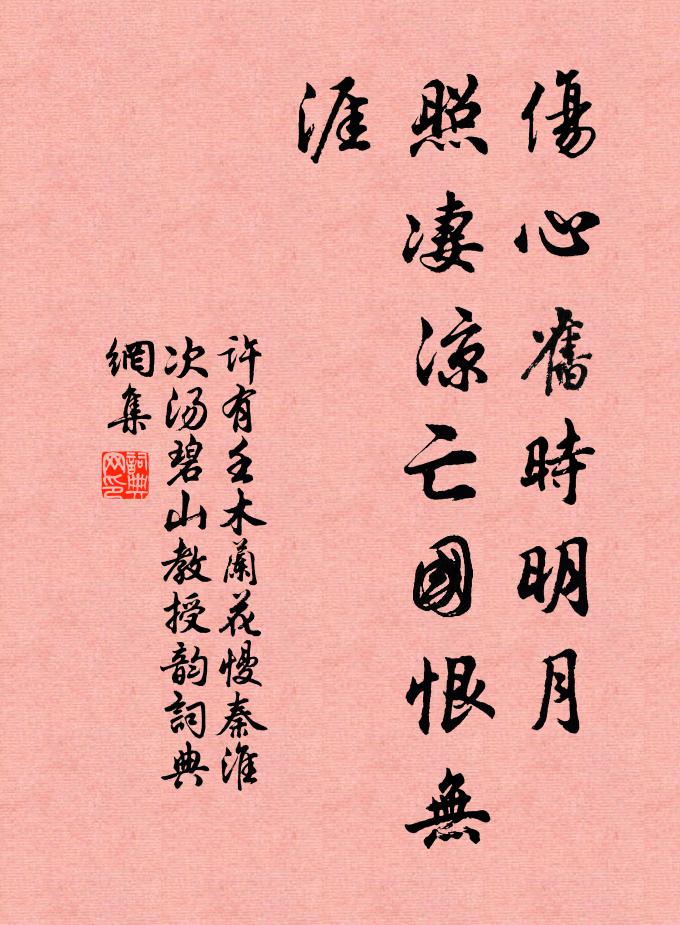 傷心舊時明月
照凄涼亡國恨無
涯
許有壬木蘭花慢秦淮
次汤碧山教授韵詞典
網集
詞典
网印